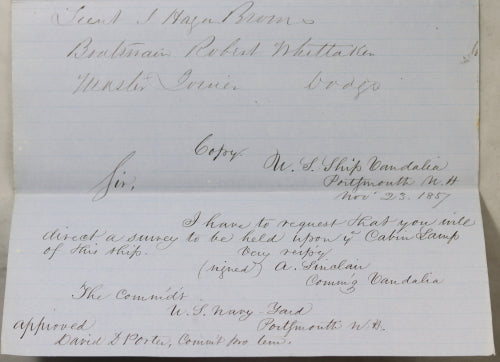 Lieut J Hagu Brown
Boatswain Robert Whittaker
Master Joiner Dodge
Copy.
U. S. Ship Vandalia
Portsmouth N. H
Nov. 23. 1857
Sir,
I have to request that you will
direct a survey to be held upon ye Cabin Lamp
of this ship.
Very respy
(signed) A. Sinclair
Commg Vandalia
The Commdt
U. S. Navy-Yard
Portsmouth N. H.
approved
David D Porter, Commdt pro tem.